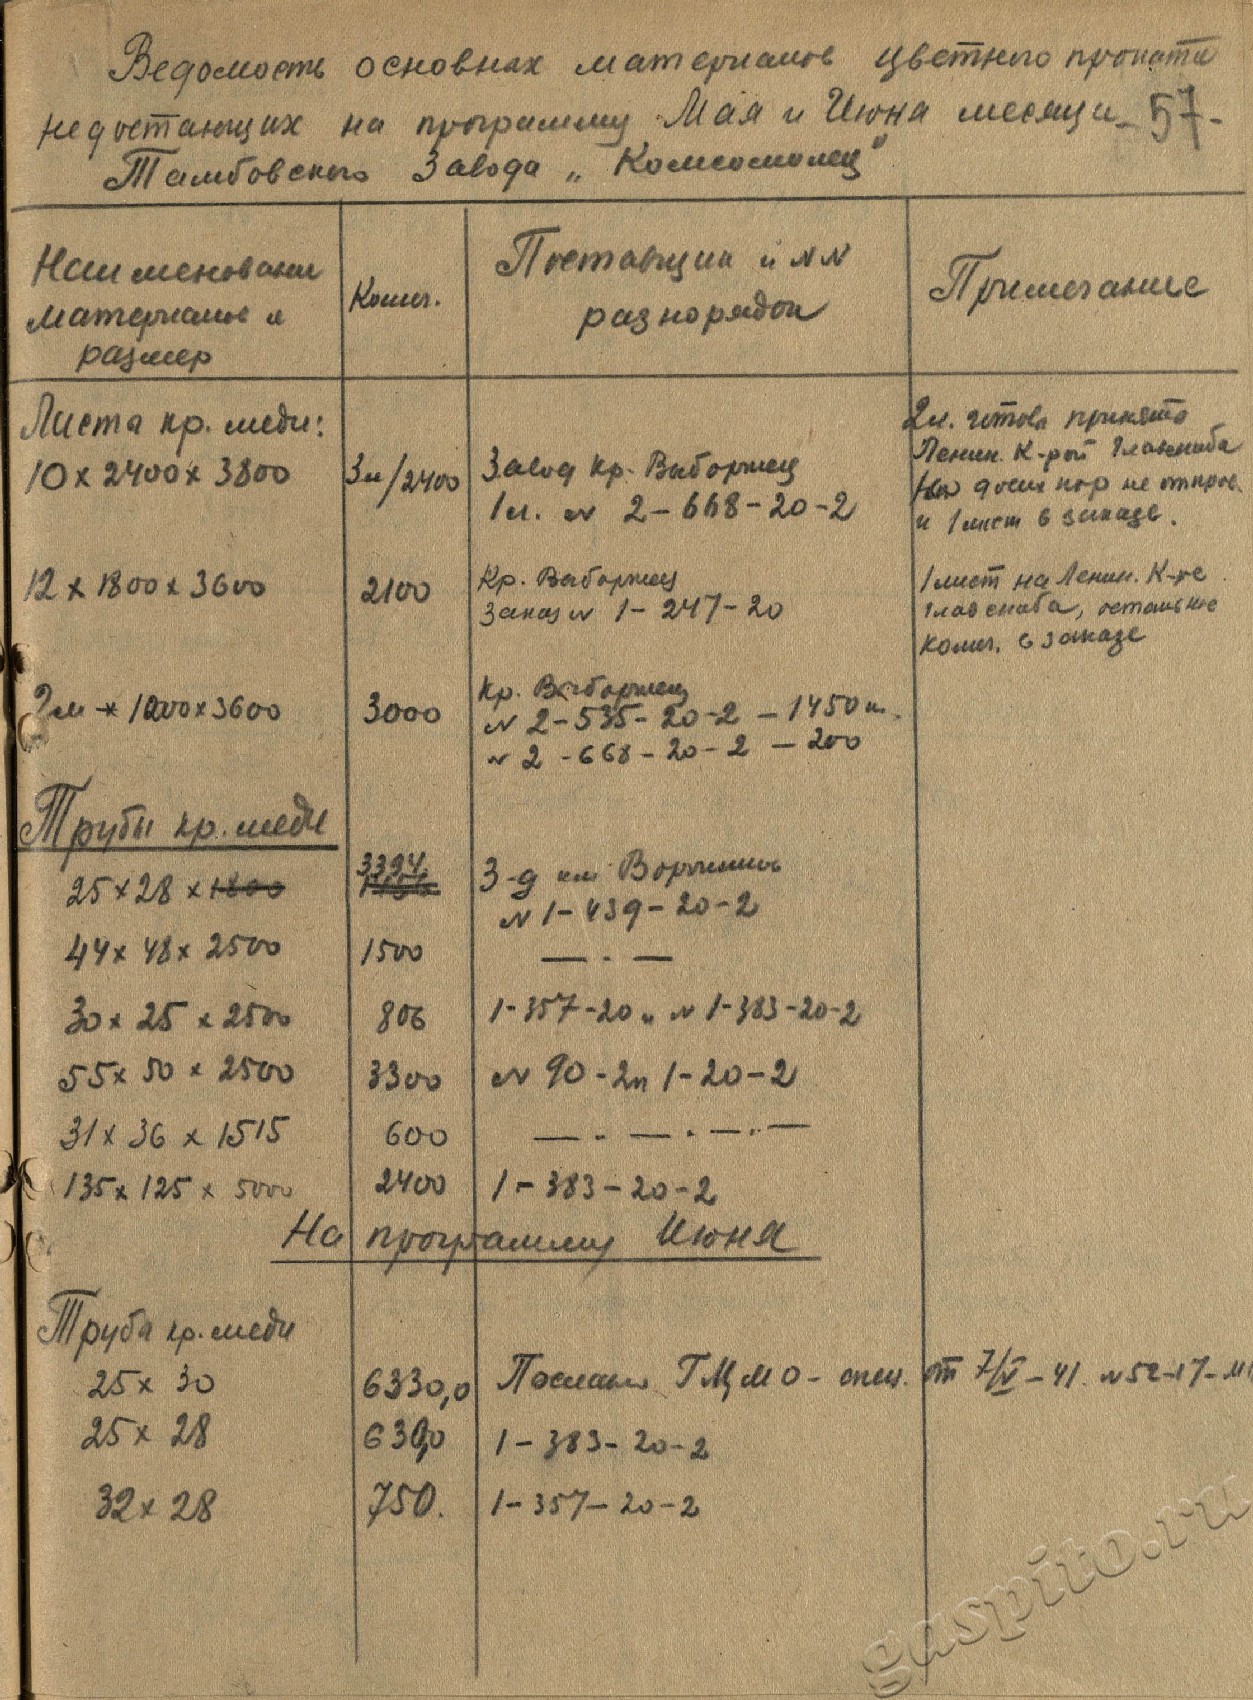 Ведомость основных материалов цветного проката
недостающих на программу Мая и Июня месяцы -57-
Тамбовского Завода „Комсомолец"
Наименовани
материалов и
размер
Колич.
Поставщик и NN
разнорядок
Примечание
Листа кр. меди:
10 x 2400 x 3800 3л/2400 Завод Кр. Выборжец
1л. N 2-668-20-2
2л. готово принято
Ленин. К-рой Главснаба
до сих пор не отправ.
и 1 лист в заказе.
12 x 1800 x 3600 2100 Кр. Выборжец
Заказ N 1-247-20
1 лист на Ленин. К-ре
Главснаба, остальное
колич. в заказе
x 1200 x 3600 3000 Кр. Выборжец
N 2-535-20-2 - 1450 кг.
N 2-668-20-2 - 200
Трубы кр. меди
25 x 28 x 1800 3394 З-д им Ворошилов
N 1-439-20-2
44 x 48 x 2500 1500 — . —
30 x 25 x 2500 806 1-357-20 и N 1-383-20-2
55 x 50 x 2500 3300 N 90-2 1-20-2
31 x 36 x 1515 600 — . — . — . —
135 x 125 x 5000 2400 1-383-20-2
На программу Июня
Труба кр. меди
25 x 30 6330,0 Послано ГЦМО - спец. от 7/V-41. N 52-17-
25 x 28 630,0 1-383-20-2
32 x 28 750. 1-357-20-2
gaspito.ru